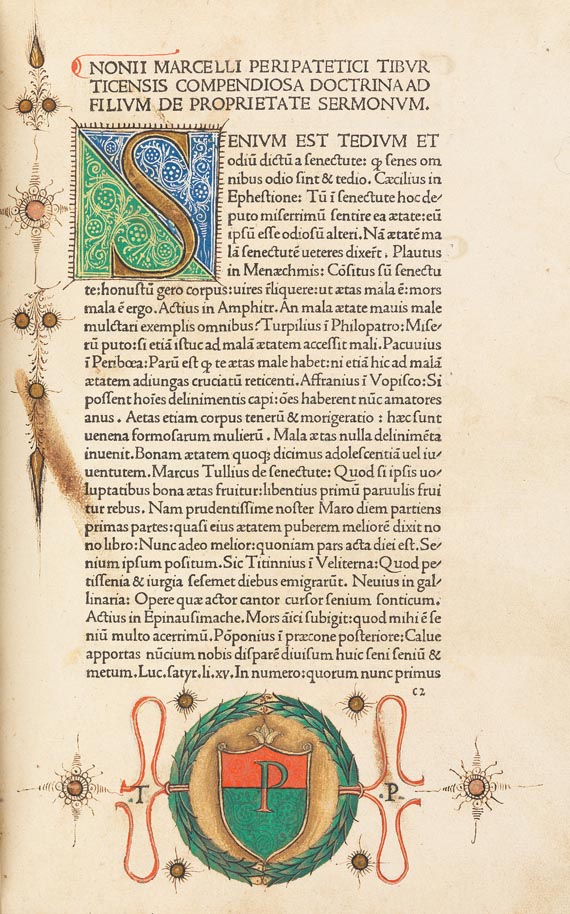 NONII MARCELLI PERIPATETICI TIBVR
TICENSIS COMPENDIOSA DOCTRINA AD
FILIVM DE PROPRIETATE SERMONVM.
SENIVM EST TEDIVM ET
odiū dictū a senectute: ꝙ senes om
nibus odio sint & tedio. Cæcilius in
Ephestione: Tū ī senectute hoc de/
puto miserrimū sentire ea ætate: eū
ipsū esse odiosū alteri. Nā ætatē ma
lā senectutē ueteres dixert̄. Plautus
in Menæchmis: Cōsitus sū senectu
te: honustū gero corpus: uires rliquere: ut ætas mala ē: mors
mala ē ergo. Actius in Amphitr. An mala ætate mauis male
mulctari exemplis omnibus? Turpilius ī Philopatro: Mise/
rū puto: si etiā istuc ad malā ætatem accessit mali. Pacuuius
ī Peribœa: Parū est ꝙ te ætas male habet: ni etiā hic ad malā
ætatem adiungas cruciatū reticenti. Affranius ī Vopisco: Si
possent hoīes delinimentis capi: ōes haberent nūc amatores
anus. Aetas etiam corpus tenerū & morigeratio: hæc sunt
uenena formosarum mulierū. Mala ætas nulla delinimēta
inuenit. Bonam ætatem quoqꝫ dicimus adolescentiā uel iu/
uentutem. Marcus Tullius de senectute: Quod si ipsis uo/
luptatibus bona ætas fruitur: libentius primū paruulis frui
tur rebus. Nam prudentissime noster Maro diem partiens
primas partes: quasi eius ætatem puberem meliorē dixit no
no libro: Nunc adeo melior: quoniam pars acta diei est. Se/
nium ipsum positum. Sic Titinnius ī Veliterna: Quod pe/
tissenia & iurgia sesemet diebus emigrarūt. Neuius in gal/
linaria: Opere quæ actor cantor cursor senium sonticum.
Actius in Epinausimache. Mors āici subigit: quod mihi ē se
niū multo acerrimū. Pōponius ī præcone posteriore: Calue
apportas nūcium nobis disparē diuisum huic seni seniū &
metum. Luc. satyr. li. xv. In numero: quorum nunc primus
c2
.T. P .P.